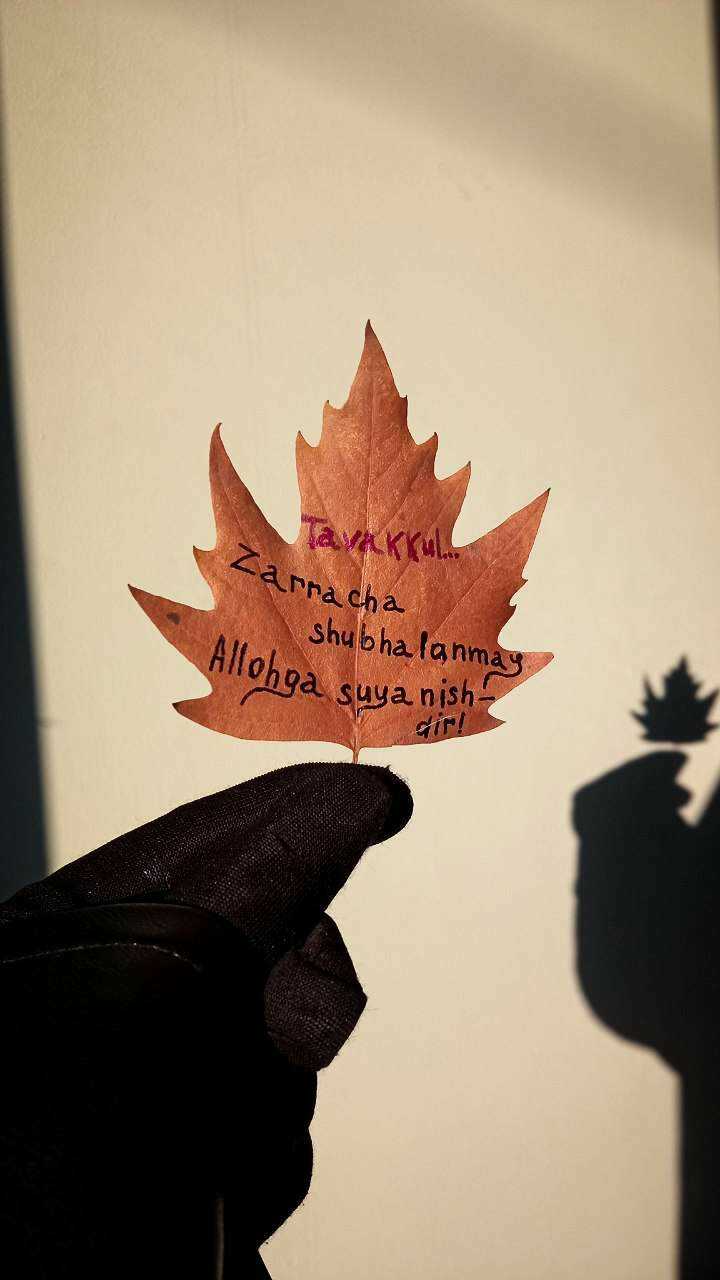 Tavakkul...
Zarracha
shubhalanmay
Allohga suyanish-
dir!